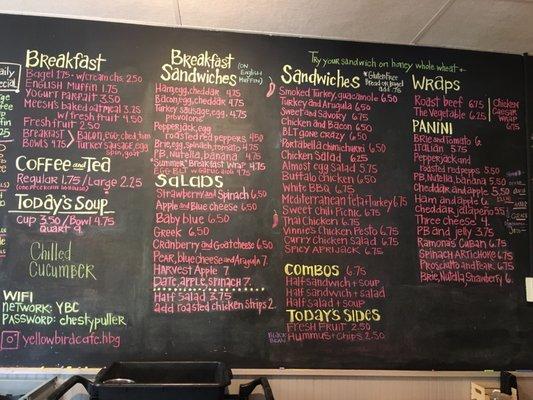 Try your sandwich on honey whole wheat
Breakfast
Bagel 1.75 - w/cream chs. 2.50
English Muffin 1.75
Yogurt Parfait 3.50
Meesh's baked oatmeal 3.25
w/fresh fruit 4.50
Fresh Fruit 2.50
Breakfast
Bowls 4.75
Bacon, egg, ched, tom
Turkey sausage, egg
Coffee and Tea
Regular 1.75 / Large 2.25
Today's Soup
Cup 3.50 / Bowl 4.75
quart 9.
Chilled
Cucumber
WiFi
Network: YBC
Password: chestypuller
yellowbirdcafe.hbg
Breakfast
Sandwiches (on English Muffin)
Ham, egg, cheddar 4.75
Bacon, egg, cheddar 4.75
Turkey sausage, egg, provolone 4.75
Pepperjack, egg
roasted red peppers 4.50
Brie, egg, spinach, tomato 4.75
PB, Nutella, banana 4.75
"Summer" Breakfast Wrap 4.75
Salads
Strawberry and Spinach 6.50
Apple and Blue cheese 6.50
Baby blue 6.50
Greek 6.50
Cranberry and Goat cheese 6.50
Pear, blue cheese and Arugula 7.
Harvest Apple 7.
Date, apple, spinach 7.
Half Salad 3.75
add roasted chicken strips 2.
Sandwiches
*Gluten Free
Bread on panini
add .75
Smoked Turkey, guacamole 6.50
Turkey and Arugula 6.50
Sweet and Savory 6.75
Chicken and Bacon 6.50
BLT gone crazy 6.50
Portabella chimichurri 6.50
Chicken Salad 6.25
Almost egg Salad 5.75
Buffalo Chicken 6.50
White BBQ 6.75
Mediterranean feta + Turkey 6.75
Sweet chili Picnic 6.75
Thai Chicken 6.75
Vinnie's Chicken Pesto 6.75
Curry Chicken Salad 6.75
Spicy Apri Jack 6.75
Combos 6.75
Half Sandwich + soup
Half sandwich + salad
Half Salad + soup
Today's Sides
Fresh Fruit 2.50
Hummus + Chips 2.50
Wraps
Roast Beef 6.75
The Vegetable 6.25
Chicken
Caesar
Wrap
6.75
Panini
Brie and Tomato 6.
Italian 6.75
Pepperjack and
roasted red peppers 5.50
PB, Nutella, banana 5.50
Cheddar and apple 5.50
Ham and apple 6.
Cheddar, jalapeno 5.50
Three Cheese 4.
PB and jelly 3.75
Ramona's Cuban 6.75
Spinach Artichoke 6.75
Prosciutto and Pear 6.75
Brie, Nutella Strawberry 6.